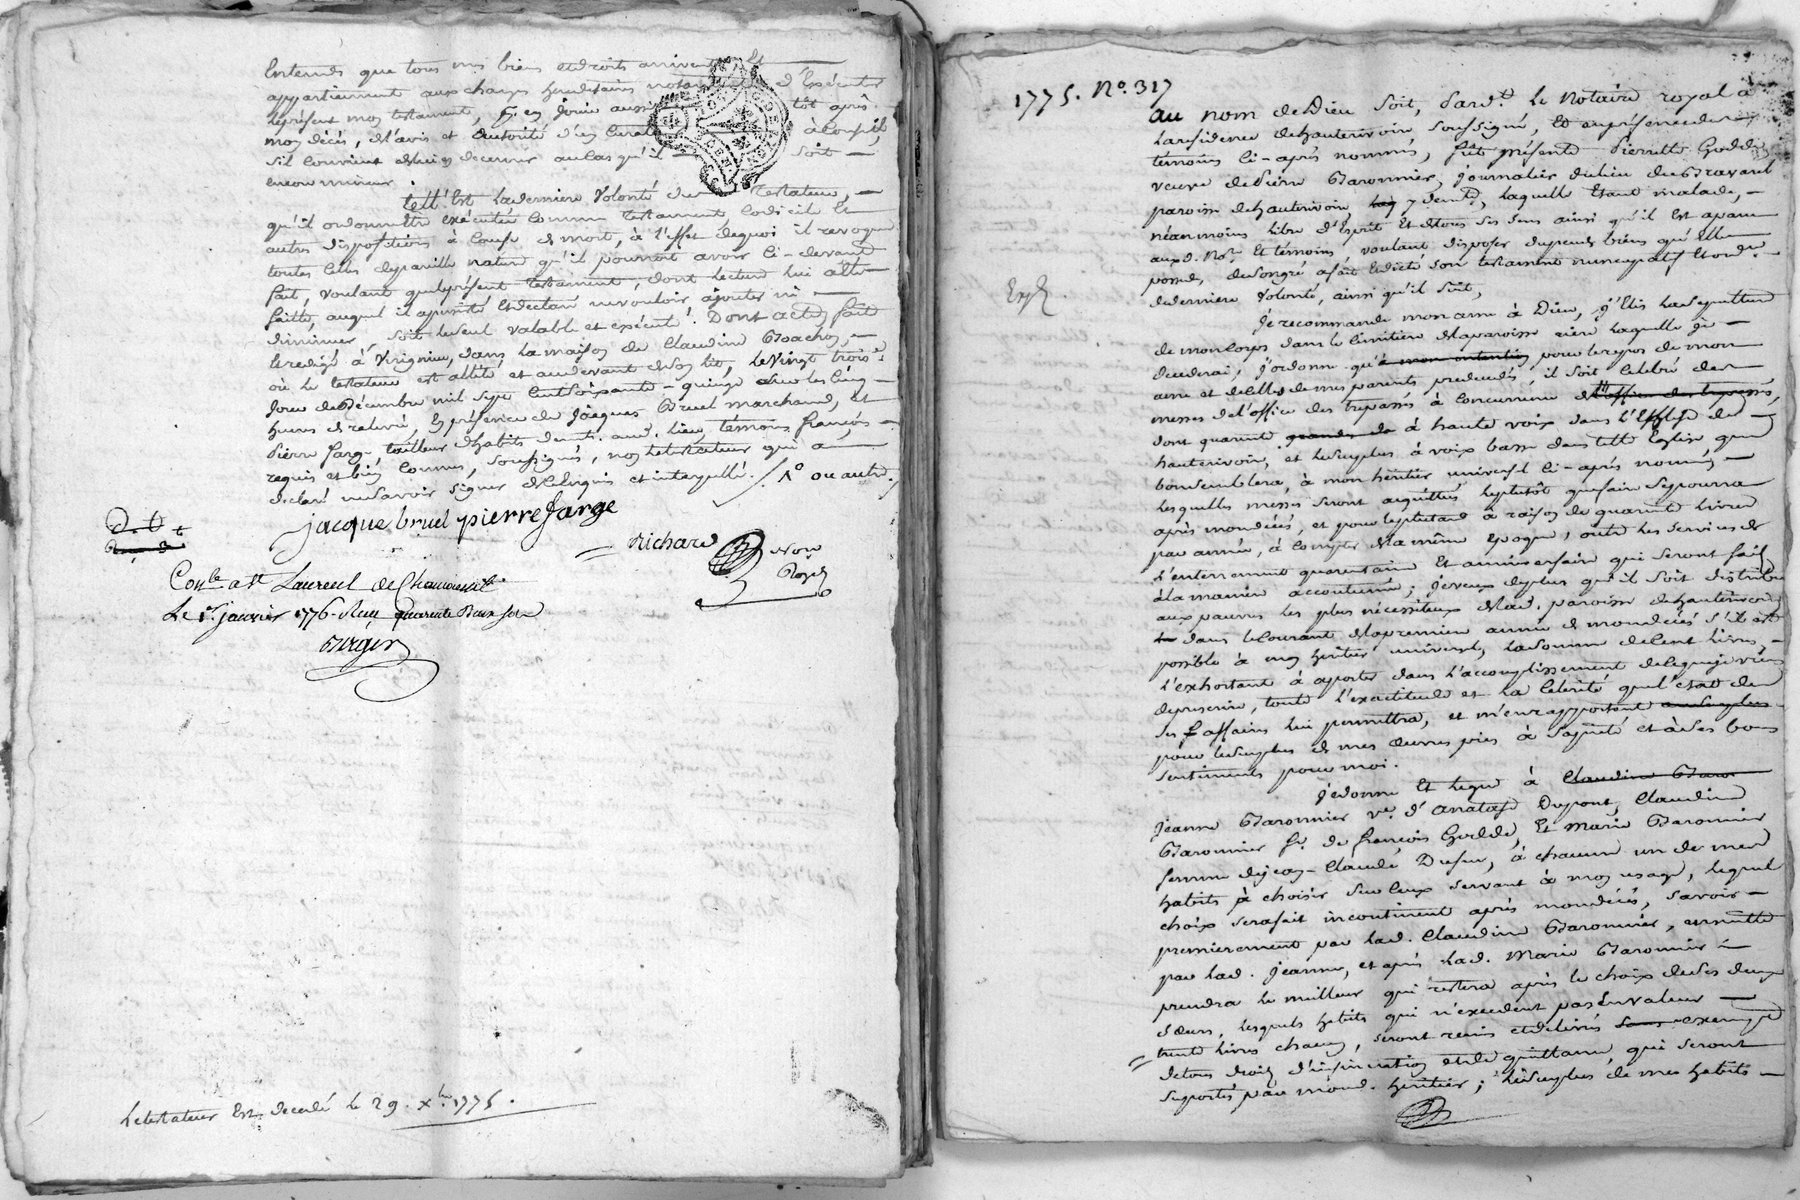 Entends que tous mes biens et droits arrivent et
appartiennent aux charges héréditaires notamment d'Exécuter
le présent mon testament, p.r en jouir aussi tôt après
mon décès, de l'avis et autorité d'un Curateur à conseil,
s'il convient de lui en décerner au cas qu'il soit
encore mineur.
telle Est La derniere Volonté du Testateur,
qu'il ordonne être exécutée Comme testament, Codicile Et
autres dispositions à Cause de mort, à l'effet de quoi il revoque
toutes celles de pareille nature qu'il pourroit avoir Ci-devant
fait, voulant que le présent testament, dont lecture lui a été
faitte, auquel il a persisté Et déclaré ne vouloir ajouter ni
diminuer, soit le seul valable et exécuté. Dont acte fait
Et redigé à Virignieu, dans la maison de Claudine
où le testateur est allité et au devant de son lit, le Vingt trois.e
Jour de Décembre mil sept Cent soixante-quinze Sur les Cinq
heures de relevée, En présence de Jacques Bruel marchand, et
Pierre farge, tailleur d'habits dem.ts aud. Lieu, témoins françois
requis et bien Connus, soussignés, non le testateur qui a
declaré ne savoir signer de ce Enquis et interpellé. / 1.° ou autre /
jacque bruel pierre farge
Richard Not.re Royal
Con.lé a St Laurent de Chamousset
Le 1.er janvier 1776. Reçu quarante Deux sols
Le testateur Est decedé le 29. x.bre 1775.
1775. N.° 317
Au nom de Dieu soit, Pard.t Le Notaire royal à
La residence de hauterivoire soussigné, Et en présence des
témoins Ci-après nommés, fut présente Pierrette Godde
veuve de Pierre Baronnier, Journalier du lieu du Bravard
paroisse de hauterivoire y dem.te, laquelle Etant malade,
néanmoins libre d'Esprit Et de tous ses sens ainsi qu'il Est aparu
aux d. No.re Et témoins, voulant disposer du peu de biens qu'Elle
possede, de son gré a fait Et dicté son testament nuncupatif Et ord.ce
de derniere Volonté, ainsi qu'il suit,
Exp.é
Je recommande mon ame à Dieu, j'Elis la sepulture
de mon Corps dans le Cimitiere de la paroisse riere laquelle je
decederai; J'ordonne qu'à mon intention pour le repos de mon
ame et de celles de mes parents predecedés, il soit Celebré des
messes de l'office des trepassés à Concurrence de l'office des trepassés,
dont quarante grandes à haute voix dans l'Eglise de
hauterivoire, et le surplus à voix basse dans telle Eglise que
bon semblera, à mon héritier universel Ci-après nommé,
Lesquelles messes seront acquittées le plutôt que faire se pourra
après mon décès, et pour le plus tard à raison de quarante livres
par année, à Compter de la même Epoque, outre les services de
L'enterrement quarantaine Et anniversaire qui seront faits
à la maniere accoutumée; Je veux de plus qu'il soit distribué
aux pauvres les plus nécessiteux de lad. paroisse de hauterivoire
dans le Courant de la premiere année de mon décès s'il est
possible à mon héritier universel, la somme de Cent livres,
L'exhortant à aporter dans l'accomplissement de ce que je viens
de prescrire, toute l'exactitude et la Célérité que l'état de
ses affaires lui permettra, et m'en rapportant au surplus
pour le surplus de mes œuvres pies à sa pieté et à ses bons
sentiments pour moi.
Je donne Et legue à Claudine Baro
Jeanne Baronnier v.e d'Anatase Dupont, Claudine
Baronnier f.e de françois Godde, Et Marie Baronnier
femme de jean-Claude Dufour, à chacune un de mes
habits à choisir sur Ceux servant à mon usage, lequel
choix sera fait incontinent après mon décès, savoir
premierement par lad. Claudine Baronnier, ensuitte
par lad. Jeanne, et après lad. Marie Baronnier
prendra le meilleur qui restera après le choix de ses deux
sœurs, lesquels habits qui n'excedent pas En valeur
trente livres chacun, seront remis et délivrés sans exempts
de tous droits d'insinuation et de quittance, qui seront
suportés par mond. héritier; Le surplus de mes habits